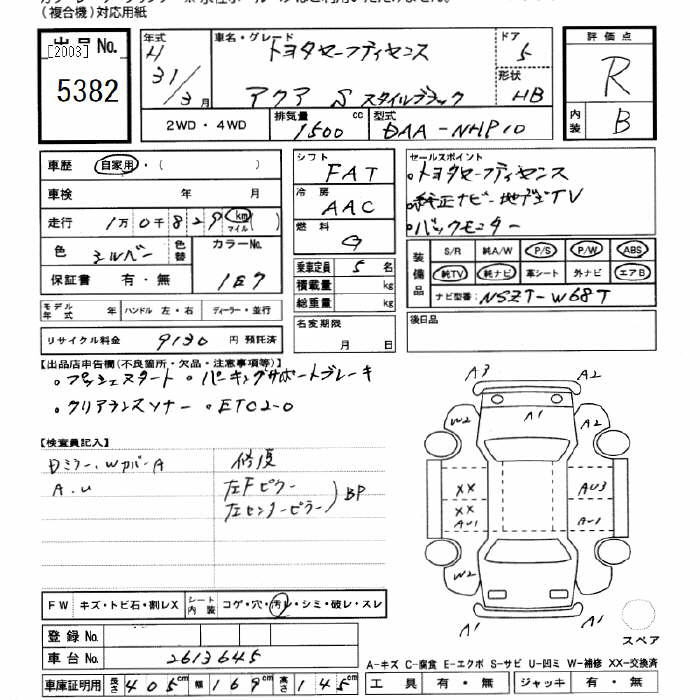 (複合機)対応用紙
出品No.
[2003]
5382
年式
H
31/3月
車名・グレード
トヨタセーフティセンス
アクア S スタイルブラック
ドア
5
形状
HB
評価点
R
内装
B
2WD・4WD
排気量
1500 cc
型式
DAA-NHP10
車歴 自家用・( )
車検 年 月
走行 1万0千829 km マイル ( )
色 シルバー 色替
カラーNo.
1E7
保証書 有・無
モデル年式 年 ハンドル 左・右 ディーラー・並行
リサイクル料金 9130 円 預託済
シフト
FAT
冷房
AAC
燃料
G
乗車定員 5 名
積載量 kg
総重量 kg
名変期限
月 日
セールスポイント
・トヨタセーフティセンス
・純正ナビ・地デジTV
・バックモニター
装備品
S/R 純A/W P/S P/W ABS
純TV 純ナビ 革シート 外ナビ エアB
ナビ型番: NSZT-W68T
後日品
【出品店申告欄(不良箇所・欠品・注意事項等)】
・プッシュスタート ・パーキングサポートブレーキ
・クリアランスソナー ・ETC2-0
【検査員記入】
Dミラー、WカバーA
A.U
修復
左Fピラー
左センターピラー
BP
A3 A2
A1
W2 A2
XX AU3
XX
AU1 AU1
W2
A1 A1
スペア
FW キズ・トビ石・割レX シート内装 コゲ・穴・汚レ・シミ・破レ・スレ
登録No.
車台No. 2613645
車庫証明用 長さ 405cm 幅 169cm 高さ 145cm
A-キズ C-腐食 E-エクボ S-サビ U-凹ミ W-補修 XX-交換済
工具 有・無 ジャッキ 有・無